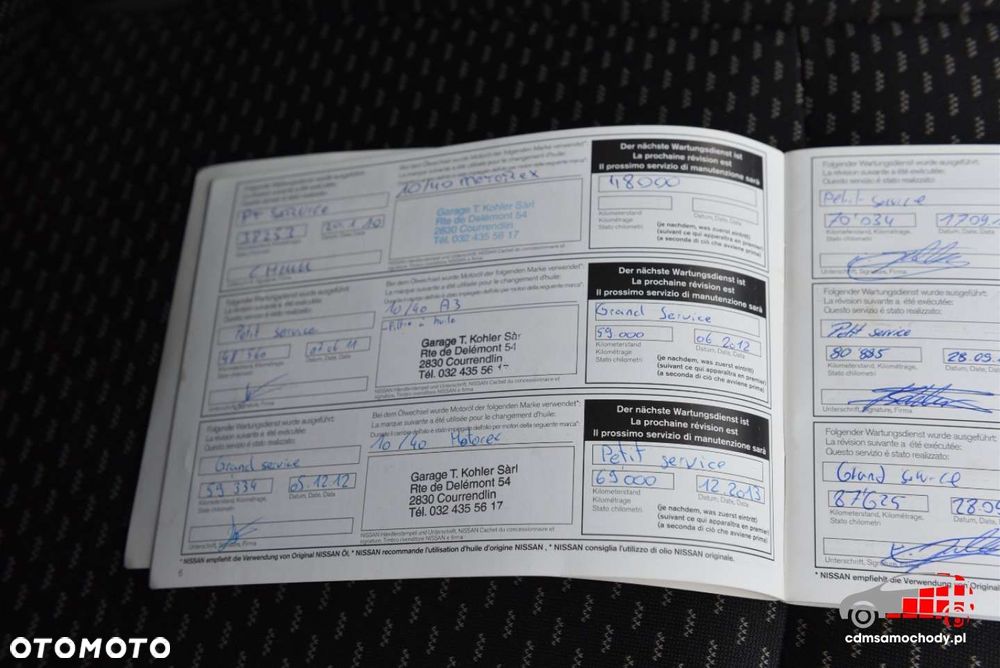 Folgender Wartungsdienst wurde ausgeführt:
La révision suivante a été exécutée:
Questo servizio è stato realizzato:
Pt service
38253
20.1.10
Stato chilometri
10/40 Motorex
Garage T. Kohler Sàrl
Rte de Delémont 54
2830 Courrendlin
Tél. 032 435 56 17
Der nächste Wartungsdienst ist
La prochaine révision est
Il prossimo servizio di manutenzione sarà
48000
Kilometerstand
Kilométrage
Stato chilometri
Datum, Date, Data
(je nachdem, was zuerst eintritt)
(suivant ce qui apparaîtra en premier)
(a seconda di ciò che avviene prima)
Folgender Wartungsdienst wurde ausgeführt:
La révision suivante a été exécutée:
Questo servizio è stato realizzato:
Petit service
Stato chilometri
Datum, Date, Data
Bei dem Ölwechsel wurde Motoröl der folgenden Marke verwendet*:
La marque suivante a été utilisée pour le changement d'huile:
10/40 A3
Filtre a huile
Garage T. Kohler Sàr
Rte de Delémont 54
2830 Courrendlin
Tél. 032 435 56 17
Der nächste Wartungsdienst ist
La prochaine révision est
Il prossimo servizio di manutenzione sarà
Grand service
59 000
06.2012
Kilometerstand
Kilométrage
Stato chilometri
Datum, Date, Data
(je nachdem, was zuerst eintritt)
(suivant ce qui apparaîtra en premier)
(a seconda di ciò che avviene prima)
Folgender Wartungsdienst wurde ausgeführt:
La révision suivante a été exécutée:
Questo servizio è stato realizzato:
Grand service
59 334
05.12.12
Kilometerstand, Kilométrage,
Stato chilometri
Datum, Date, Data
Unterschrift, Signature, Firma
Bei dem Ölwechsel wurde Motoröl der folgenden Marke verwendet*:
La marque suivante a été utilisée pour le changement d'huile:
10/40 Motorex
Garage T. Kohler Sàrl
Rte de Delémont 54
2830 Courrendlin
Tél. 032 435 56 17
Der nächste Wartungsdienst ist
La prochaine révision est
Il prossimo servizio di manutenzione sarà
Petit service
69 000
12.2013
Kilometerstand
Kilométrage
Stato chilometri
Datum, Date, Data
(je nachdem, was zuerst eintritt)
(suivant ce qui apparaîtra en premier)
(a seconda di ciò che avviene prima)
* NISSAN empfiehlt die Verwendung von Original NISSAN Öl, * NISSAN recommande l'utilisation d'huile d'origine NISSAN, * NISSAN consiglia l'utilizzo di olio NISSAN originale.
6
Folgender Wartungsdienst wurde ausgeführt:
La révision suivante a été exécutée:
Questo servizio è stato realizzato:
Petit service
70'034
1709
Kilometerstand, Kilométrage,
Stato chilometri
Datum, Date, Data
Unterschrift, Signature, Firma
Folgender Wartungsdienst wurde ausgeführt:
La révision suivante a été exécutée:
Questo servizio è stato realizzato:
Petit service
80 885
28.09.
Kilometerstand, Kilométrage,
Stato chilometri
Datum, Date, Data
Unterschrift, Signature, Firma
Folgender Wartungsdienst wurde ausgeführt:
La révision suivante a été exécutée:
Questo servizio è stato realizzato:
Grand service
87'625
Kilometerstand, Kilométrage,
Stato chilometri
Datum, Date, Data
* NISSAN empfiehlt die Verwendung von Original
OTOMOTO
cdmsamochody.pl